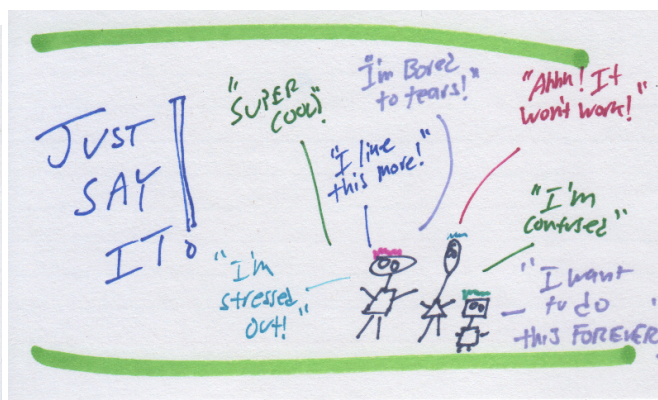 JUST
SAY
IT!
"SUPER
COOL!"
"I'm Bored
to tears!"
"Ahhh! It
won't work!"
"I like
this more!"
"I'm
confused"
"I'm
stressed
out!"
"I want
to do
this FOREVER"